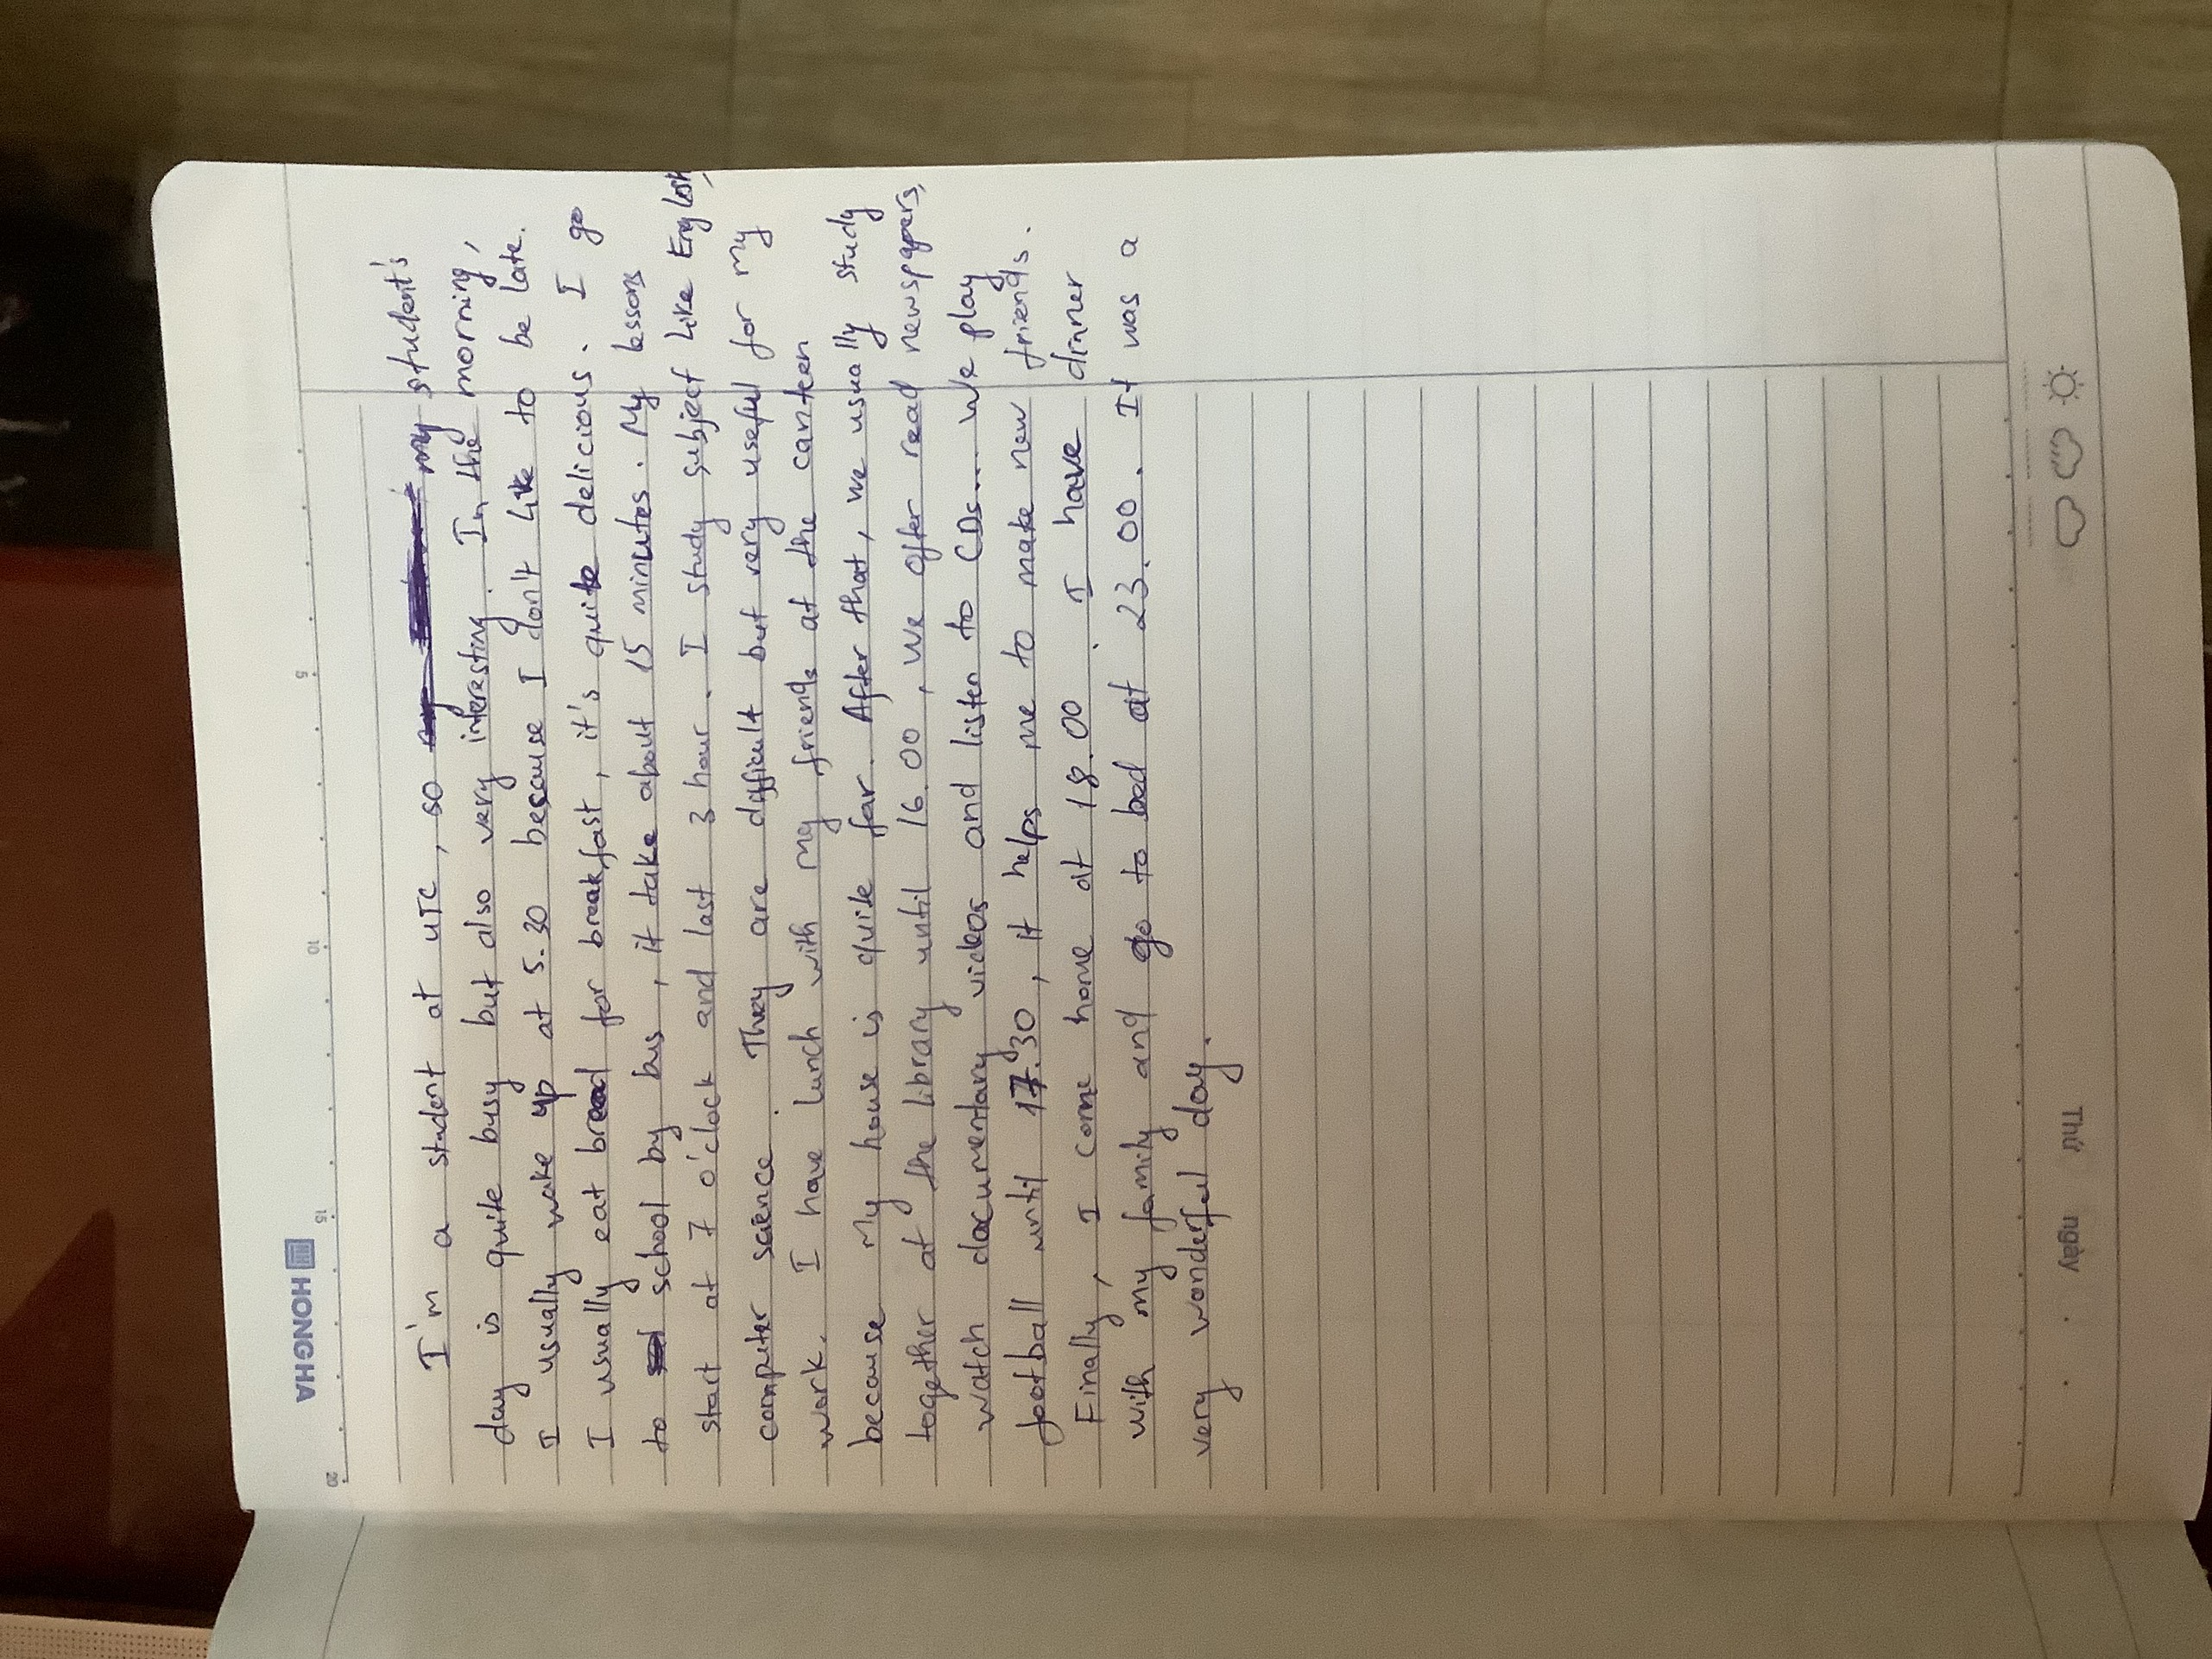 HONG HA
20 15 10 5
I'm a student at UTC, so my student's
day is quite busy but also very interesting. In the morning,
I usually wake up at 5.30 because I don't like to be late.
I usually eat bread for breakfast, it's quite delicious. I go
to school by bus, it take about 15 minutes. My lessons
start at 7 o'clock and last 3 hour. I study subject like English,
computer science. They are difficult but very useful for my
work. I have lunch with my friends at the canteen
because my house is quite far. After that, we usually study
together at the library until 16.00, we offer read newspapers,
watch documentary videos and listen to CDs... We play
football until 17.30, it helps me to make new friends.
Finally, I come home at 18.00. I have dinner
with my family and go to bed at 23.00. It was a
very wonderful day.
Thứ ngày . .